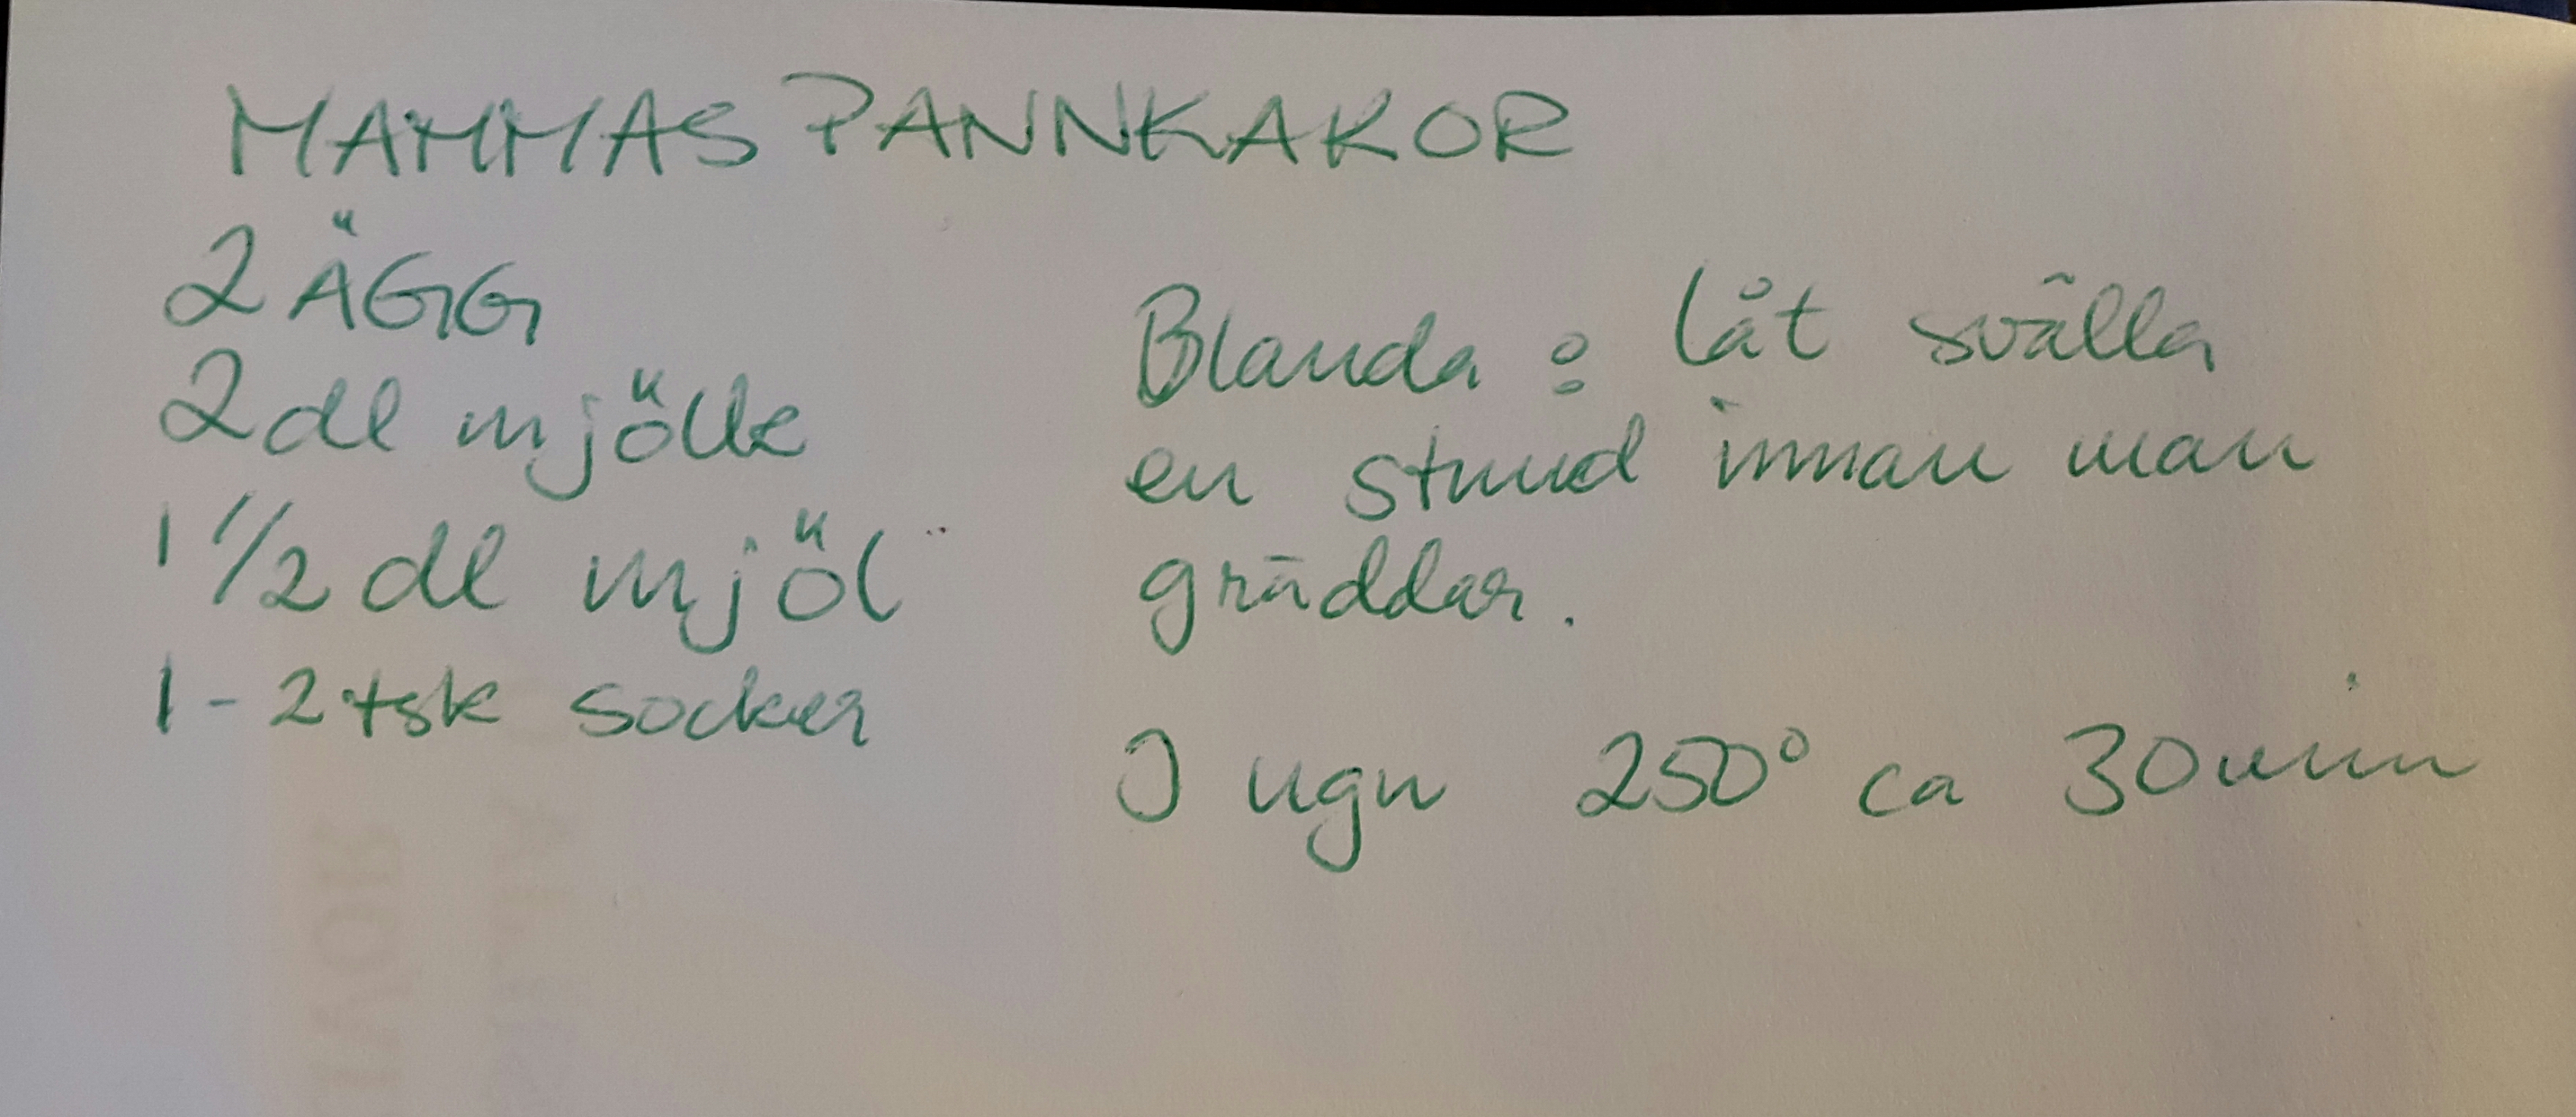 MAMMAS PANNKAKOR
2 ÄGG
2 dl mjölk
1 1/2 dl mjöl
1-2 tsk socker
Blanda : låt svälla
en stund innan man
gräddar.
I ugn 250° ca 30 min